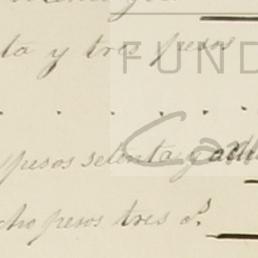 ta y tres pesos
FUND
Ca
pesos setenta y
cho pesos tres r.s